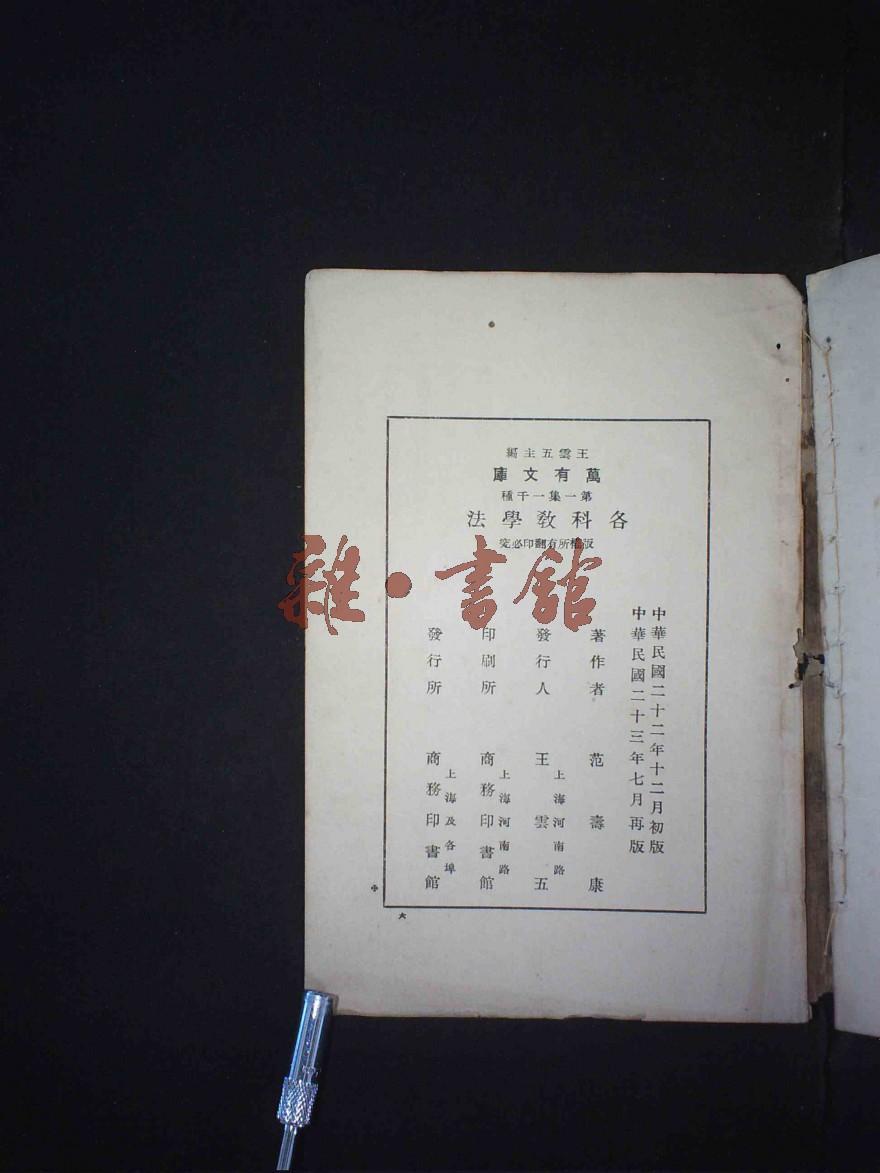 王雲五主編
萬有文庫
第一集一千種
各科教學法
版權所有翻印必究
中華民國二十二年十二月初版
中華民國二十三年七月再版
著作者 范壽康
發行人 王雲五
上海河南路
印刷所 商務印書館
上海河南路
發行所 商務印書館
上海及各埠
六
雜·書館